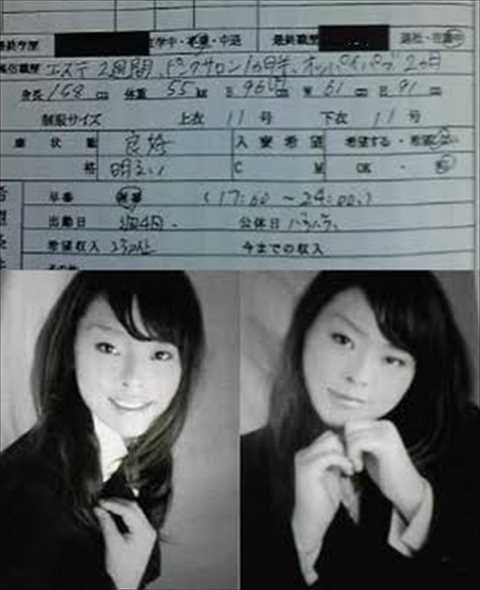 最終学歴 在学中・卒業・中退 最終職歴 退社・在職中
風俗職歴 エステ2週間、ピンクサロン1ヵ月半、オッパイパブ2ヵ月
身長 158 cm 体重 55 kg B 96 cm W 61 cm H 91 cm
制服サイズ 上衣 11 号 下衣 11 号
康状態 良好 入寮希望 希望する・希望
格 明るい C M OK ・
早番 遅番 (17:00 ~ 24:00)
出勤日 週4日、 公休日 バラバラ、
希望収入 今までの収入